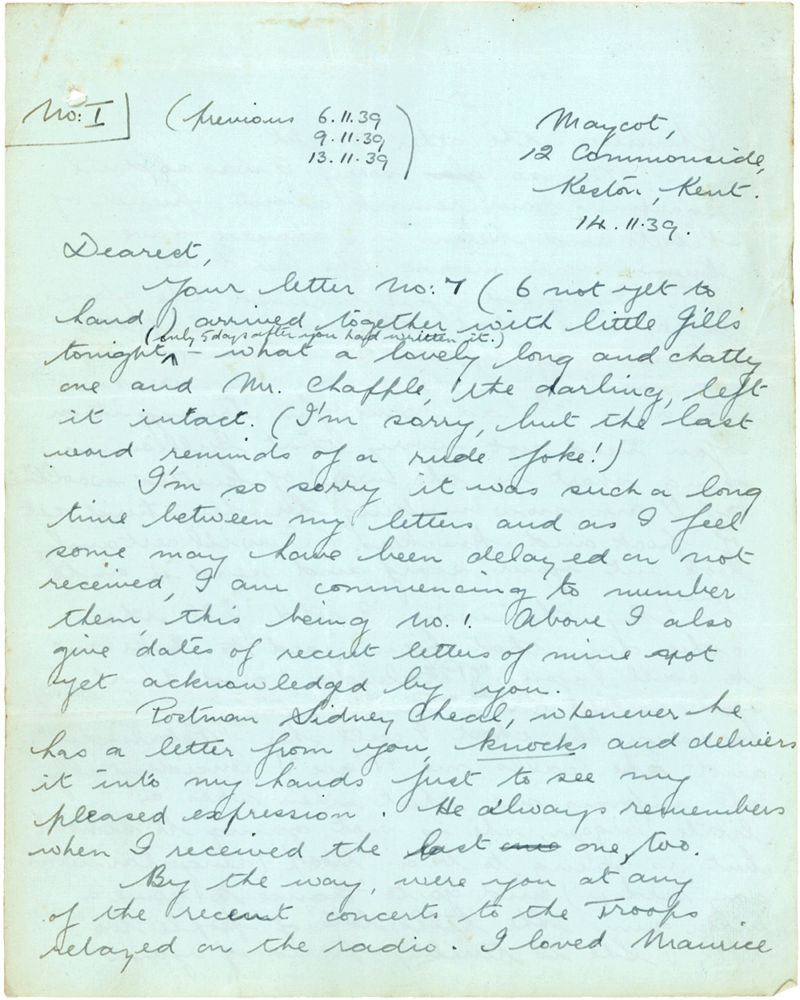 No: I
(previous 6.11.39
9.11.39
13.11.39)
Maycot,
12 Commonside,
Keston, Kent.
14.11.39.
Dearest,
Your letter no: 7 (6 not yet to
hand) arrived together with little Jills
(only 5 days after you had written it.)
tonight – what a lovely long and chatty
one and Mr. Chaffle, the darling, left
it intact. (I'm sorry, but the last
word reminds of a rude joke!)
I'm so sorry it was such a long
time between my letters and as I feel
some may have been delayed or not
received, I am commencing to number
them, this being no. 1. Above I also
give dates of recent letters of mine not
yet acknowledged by you.
Postman Sidney Cheal, whenever he
has a letter from you, knocks and delivers
it into my hands just to see my
pleased expression. He always remembers
when I received the last one one, too.
By the way, were you at any
of the recent concerts to the Troops
relayed on the radio. I loved Maurice